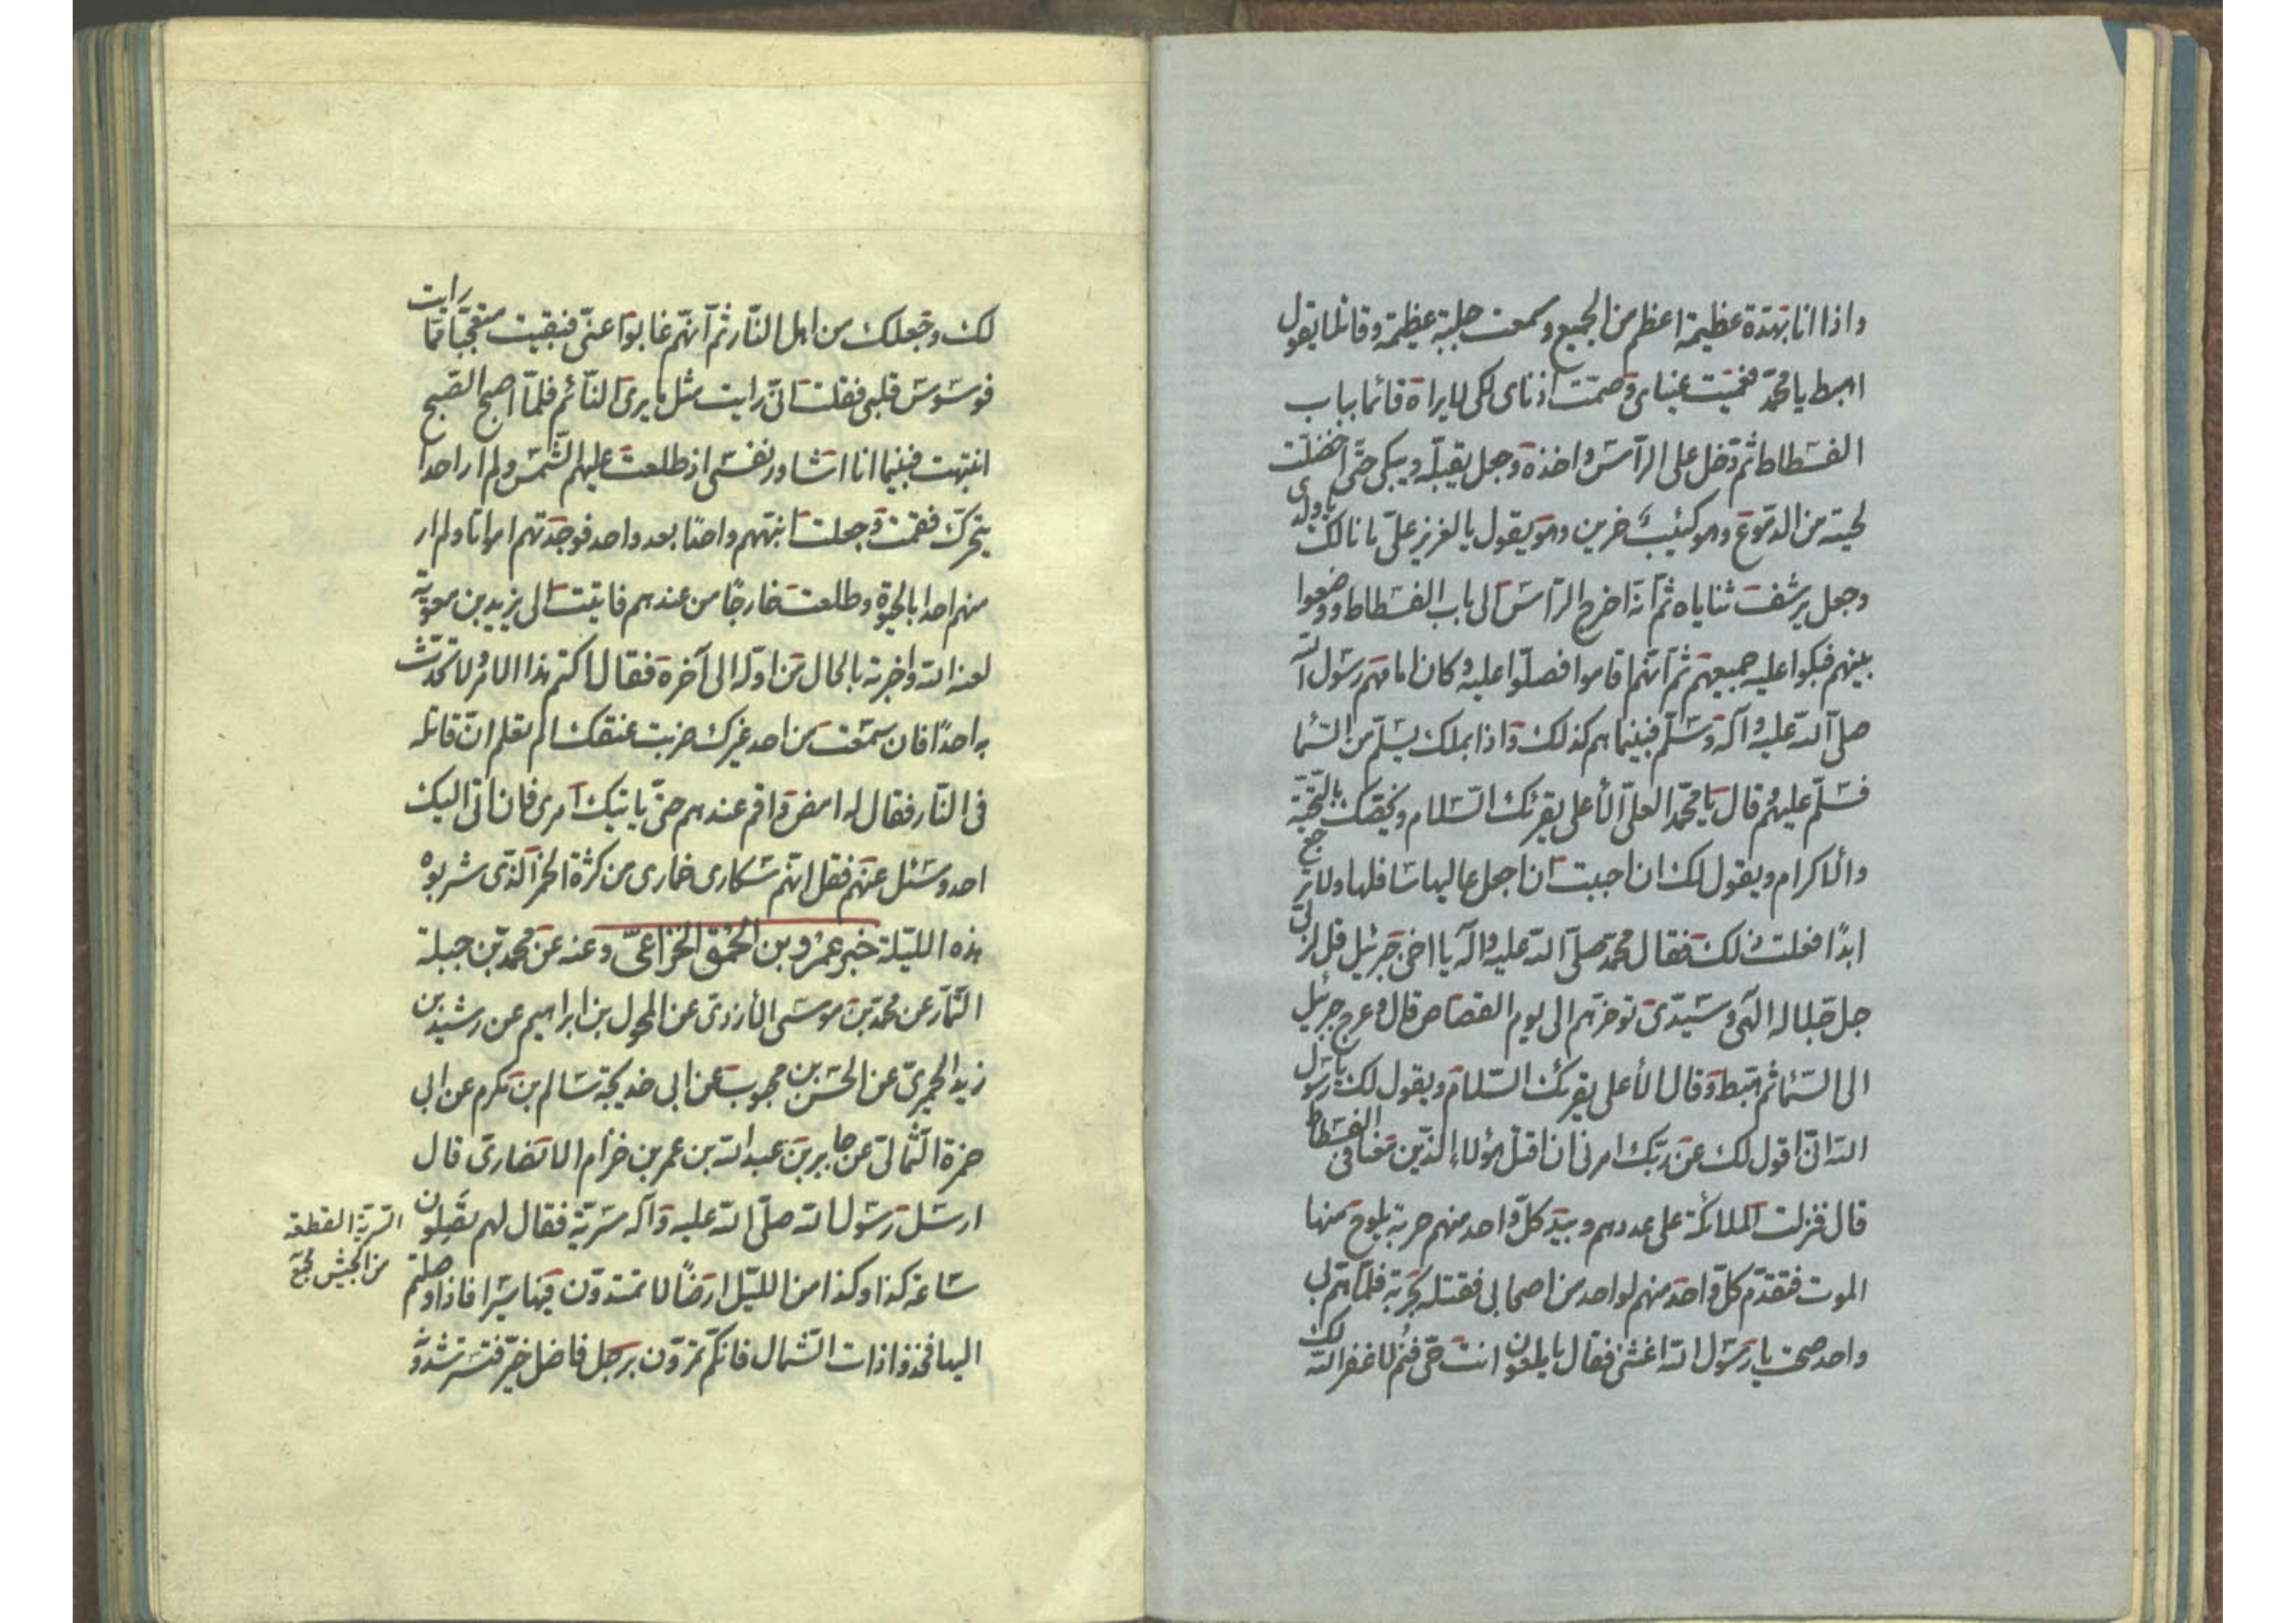 واذا انا بهدة عظيمة اعظم من الجميع وسمعت جلبة عظيمة وقائلا يقول
اهبط يا محمد فعميت عيناي وصمّت اذناي لكي لا يراه قائما بباب
الفسطاط ثم دخل على الرأس واخذه وجعل يقبله ويبكي حتى اخضلت
لحيته من الدموع وهو كئيب حزين وهو يقول يا لعزيز علي ما نالك يا ولدي
وجعل يرشف ثناياه ثم انه اخرج الرأس الى باب الفسطاط ووضعوا
بينهم فبكوا عليه جميعهم ثم انهم قاموا فصلوا عليه وكان امامهم رسول الله
صلى الله عليه وآله وسلم فبينما هم كذلك واذا بملك يسلم من السما
فسلم عليهم قال يا محمد العلي الأعلى يقرئك السلام ويخصك بالتحية
والاكرام ويقول لك ان احببت ان اجعل عاليها سافلها ولا ترجع
ابدًا فعلت ذلك فقال محمد صلى الله عليه وآله يا اخي جبرئيل قل لربي
جل جلاله الهي وسيدي توخرهم الى يوم القصاص قال وعرج جبرئيل
الى السما ثم هبط وقال الأعلى يقرئك السلام ويقول لك يا رسول
الله اني اقول لك عن ربك امرني ان اقتل هؤلاء الذين معنا في الفسطاط
قال فنزلت الملائكة على عددهم وبيد كل واحد منهم حربة يلوح منها
الموت فتقدم كل واحد منهم لواحد من اصحابي فقتله بحربة فلما هم بي
واحد صحت يا رسول الله اغثني فقال يا ملعون انت حي فنم لا غفر الله لك
لك وجعلك من اهل النار ثم انهم غابوا عني فبقيت متعجبا مما رايت
فوسوس قلبي فقلت اني رايت مثل ما يرى النائم فلما اصبح الصبح
انتبهت فبينما انا اشاور نفسي اذ طلعت عليهم الشمس ولم ار احدا
يتحرك فقمت وجعلت انبههم واحدًا بعد واحد فوجدتهم امواتا ولم ار
منهم احدا بالحيوة وطلعت خارجًا من عندهم فاتيت الى يزيد بن معوية
لعنه الله واخبرته بالحال من اوله الى آخره فقال اكتم هذا الامر ولا تحدث
به احدًا فان سمعت من احد غيرك ضربت عنقك الم تعلم ان قاتله
في النار فقال له امض واقم عندهم حتى ياتيك امري فان اتى اليك
احد وسئل عنهم فقل انهم سكارى خمارى من كثرة الخمر الذي شربوه
هذه الليلة خبر عمرو بن الحمق الخزاعي وعنه عن محمد بن جبلة
التمار عن محمد بن موسى الأزدي عن المحول بن ابراهيم عن رشيد بن
زيد الحميري عن الحسن بن محبوب عن ابي خديجة سالم بن مكرم عن ابي
حمزة الثمالي عن جابر بن عبد الله بن عمر بن خزام الانصاري قال
ارسل رسول الله صلى الله عليه وآله سرية فقال لهم تصلون
ساعة كذا وكذا من الليل ارضًا لا تهتدون فيها سيرا فاذا وصلتم
اليها فخذوا ذات الشمال فانكم تمرون برجل فاضل خير فتسترشدوه
السرية القطعة
من الجيش مجمع